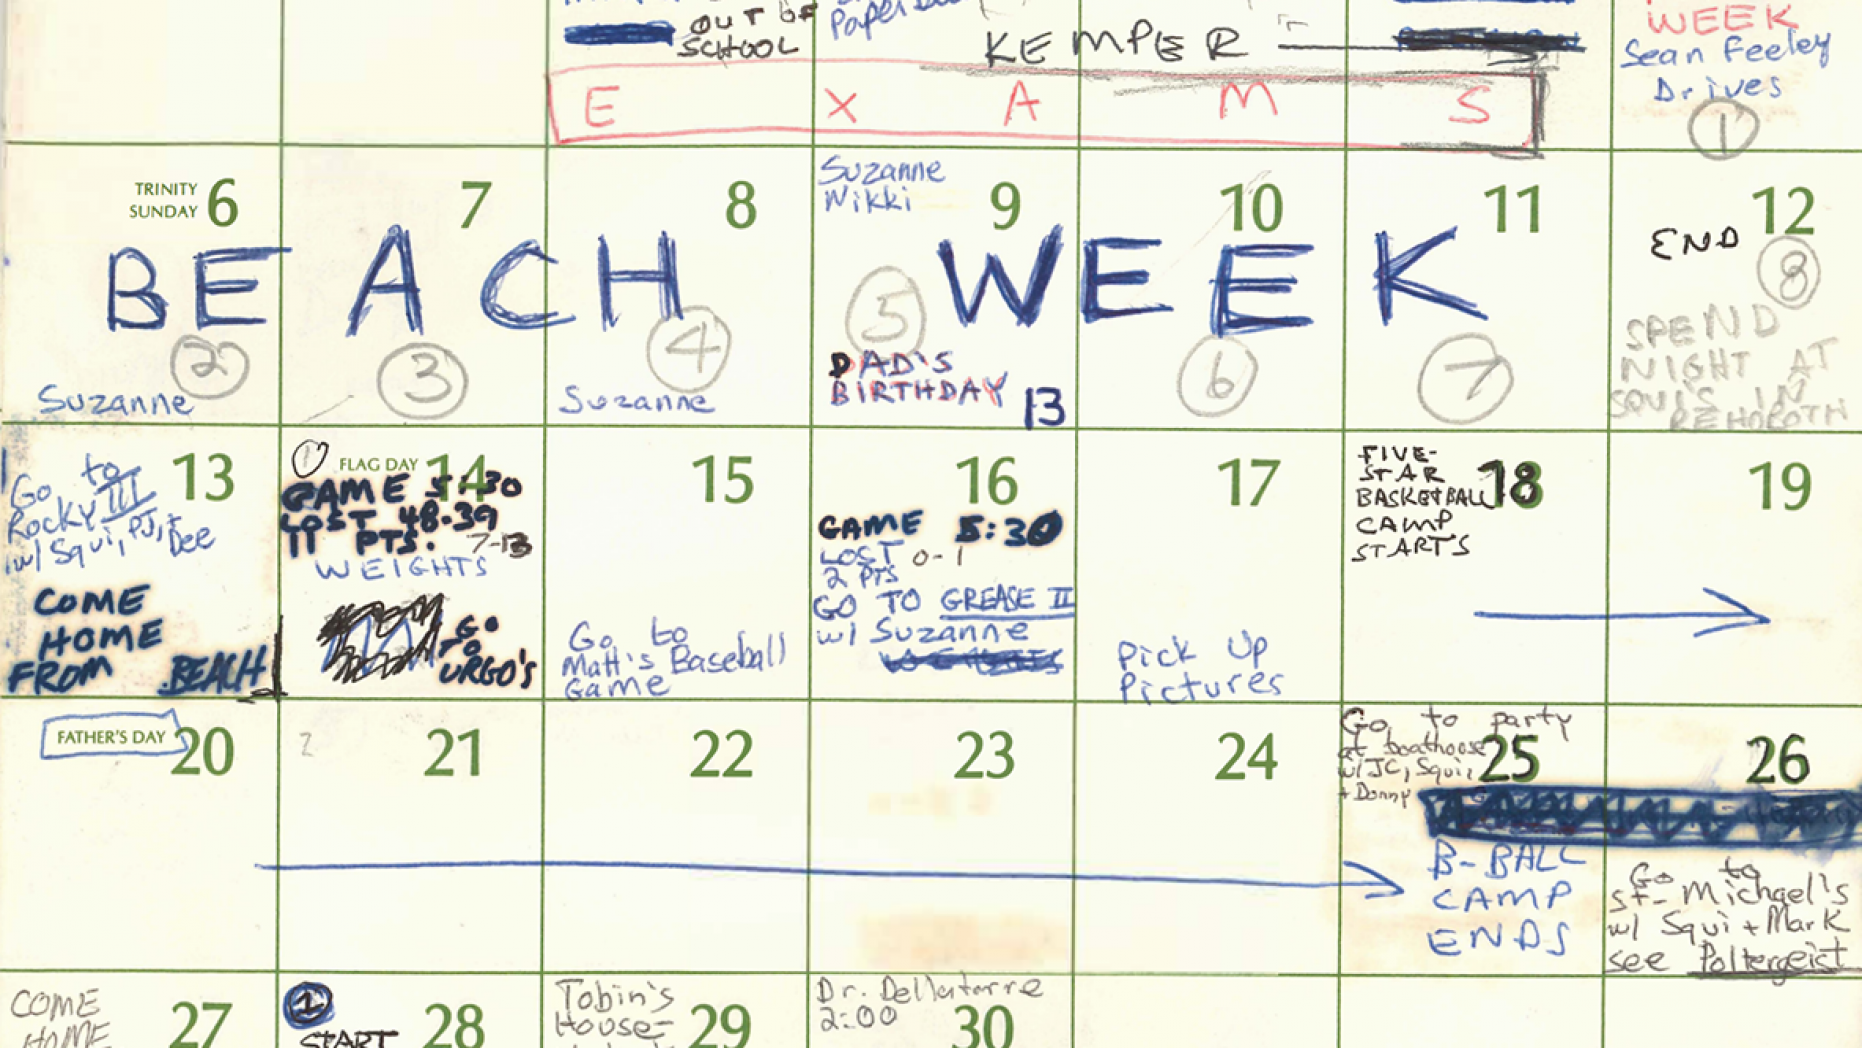 OUT OF
SCHOOL
KEMPER
WEEK
Sean Feeley
Drives
1
E X A M S
TRINITY
SUNDAY 6
7
8
Suzanne
Nikki
9
10
11
12
END
BEACH WEEK
2
3
4
5
6
7
8
SPEND
NIGHT AT
SQUI'S IN
REHOBOTH
Suzanne
Suzanne
DAD'S
BIRTHDAY
13
Go to
Rocky III
w/ Squi, PJ, +
Dee
13
COME
HOME
FROM BEACH
1
FLAG DAY 14
GAME 5:30
LOST 48-39
11 PTS. 7-13
WEIGHTS
GO
TO
URGO'S
15
Go to
Matt's Baseball
Game
16
GAME 5:30
LOST 0-1
2 PTS
GO TO GREASE II
w/ Suzanne
17
Pick Up
Pictures
FIVE-
STAR
BASKETBALL
CAMP
STARTS
18
19
FATHER'S DAY 20
2
21
22
23
24
Go to party
at boathouse
w/ JC, Squi,
+ Donny
25
B-BALL
CAMP
ENDS
26
Go to
St. Michael's
w/ Squi + Mark
see Poltergeist
COME
HOME
27
1
START
28
Tobin's
House-
29
Dr. Dellatorre
2:00
30